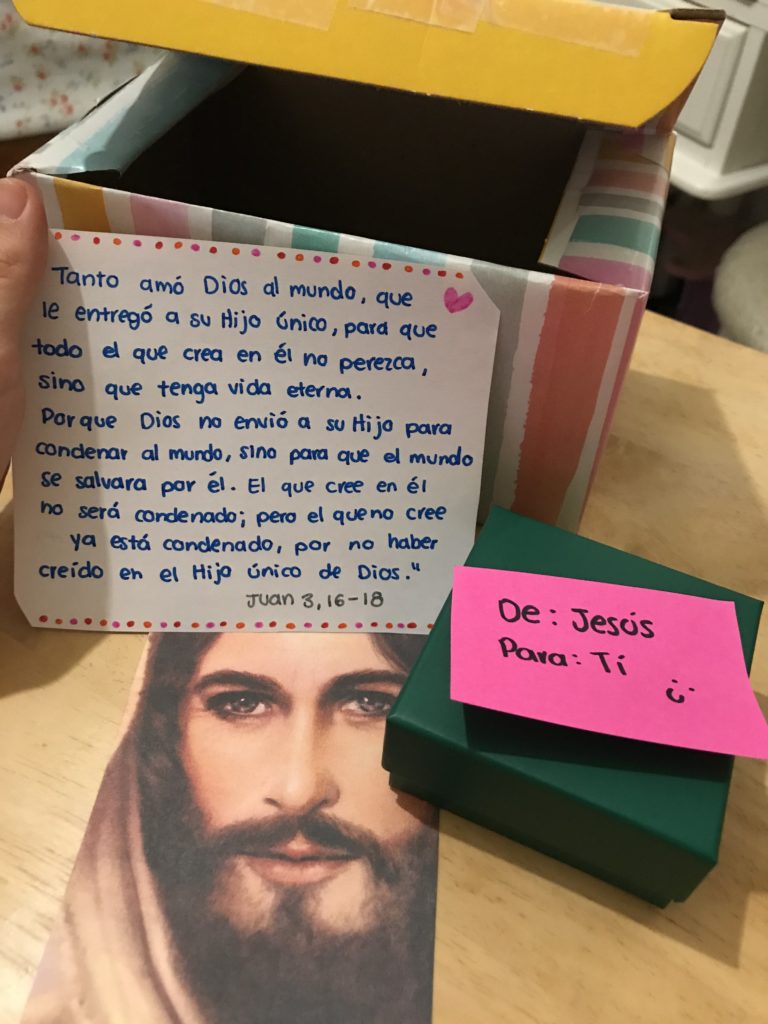 Tanto amó Dios al mundo, que
le entregó a su Hijo único, para que
todo el que crea en él no perezca,
sino que tenga vida eterna.
Porque Dios no envió a su Hijo para
condenar al mundo, sino para que el mundo
se salvara por él. El que cree en él
no será condenado; pero el que no cree
ya está condenado, por no haber
creído en el Hijo único de Dios."
Juan 3, 16-18
De: Jesús
Para: Tí